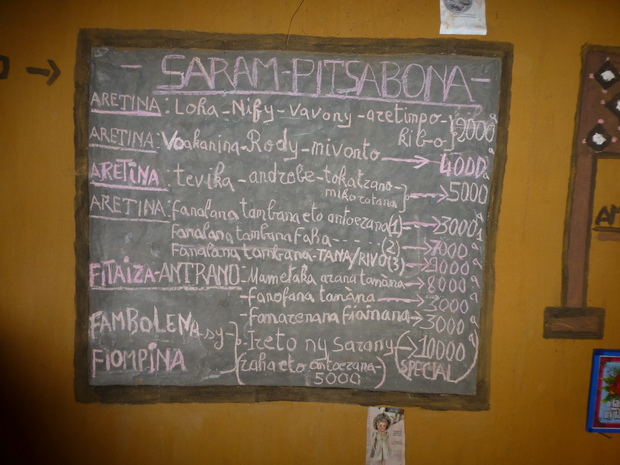 - SARAM-PITSABONA -
ARETINA: Loha-Nify-Vavony-aretimpo-kibo} 3000a
ARETINA: Voakanina-Rody-mivonto → 4000a
ARETINA: tevika-androbe-tokatrano mikorotana} → 5000
ARETINA: fanalana tambana eto antoerana (1) → 3000a
Fanalana tambana Faha----- (2) → 7000a
Fanalana tambana-TANA/RIVO (3) → 9000a
FITAIZA-ANTRANO: Mametaka arana tanana → 8000a
-fanofana tanana → 3000a
-Famarenana fiainana → 3000a
FAMBOLENA sy FIOMPINA {-Ireto ny sarany → 10000a
(raha eto antoerana-5000 (SPECIAL)